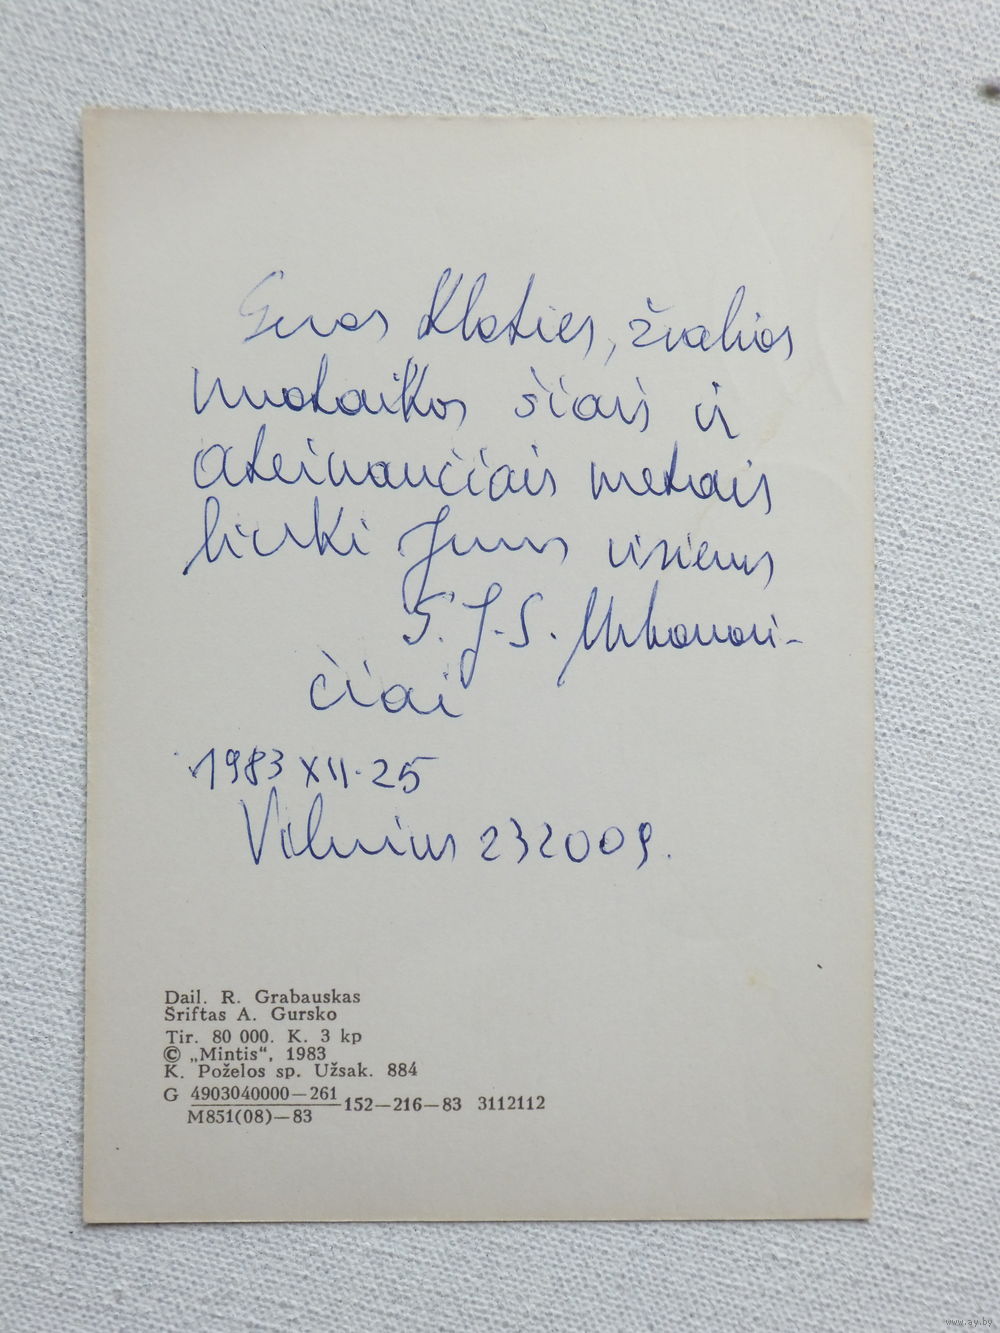 Geros kloties, žvalios
nuotaikos šiais ir
ateinančiais metais
linki Jums visiems
G. J. S. Urbonavi-
čiai
1983 XII. 25
Vilnius 232009.
Dail. R. Grabauskas
Šriftas A. Gursko
Tir. 80 000. K. 3 kp
© „Mintis“, 1983
K. Poželos sp. Užsak. 884
G 4903040000—261
M851(08)—83
152—216—83 3112112
www.ay.by